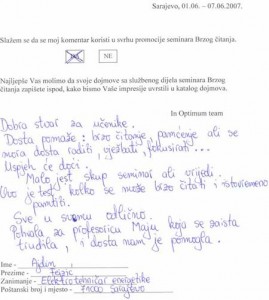 Sarajevo, 01.06. – 07.06.2007.
Slažem se da se moj komentar koristi u svrhu promocije seminara Brzog čitanja.
DA NE
Najljepše Vas molimo da svoje dojmove sa službenog dijela seminara Brzog
čitanja zapišete ispod, kako bismo Vaše impresije uvrstili u katalog dojmova.
In Optimum team
Dobra stvar za učenike.
Dosta pomaže: brzo čitanje, pamćenje ali se
mora dosta raditi, vježbati, fokusirati...
Uspjeh će doći.
Malo jest skup seminar ali vrijedi.
Ovo je test, kolko se može brzo čitati i istovremeno
pamtiti.
Sve u svemu odlično.
Pohvala za profesoricu Maju koja se zaista
trudila, i dosta mam je pomogla.
Ime - Ajdin
Prezime - Fejzić
Zanimanje - Elektrotehničar energetike
Poštanski broj i mjesto - 71000 Sarajevo